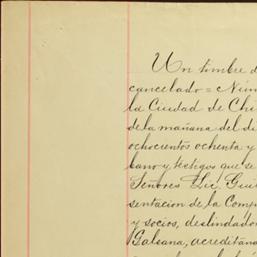 Un timbre d
cancelado = Núm
la Ciudad de Chi
de la mañana del di
ochocientos ochenta y
bano y testigos que se
Señores Lic. Guil
sentacion de la Comp
y socios, deslindado
Galeana, acreditán